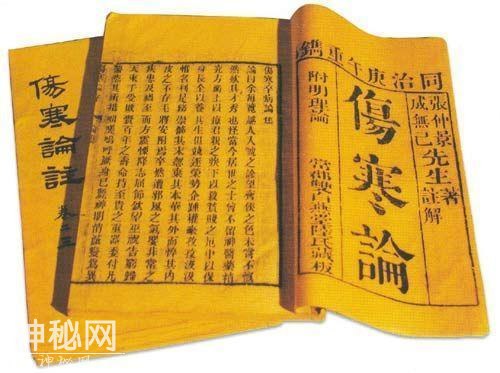 同治庚午重鐫
張仲景著
成無己先生註解
傷寒論
附明理論 常郡雙白燕堂陸氏藏板
傷寒卒病論集
論曰余每覽越人入虢之診望齊侯之色未嘗不慨
然歎其才秀也怪當今居世之士曾不留神醫藥精
究方術上以療君親之疾下以救貧賤之厄中以保
身長全以養其生但競逐榮勢企踵權豪孜孜汲汲
惟名利是務崇飾其末忽棄其本華其外而悴其內
皮之不存毛將安附焉卒然遭邪風之氣嬰非常之
疾患及禍至而方震慄降志屈節欽望巫祝告窮歸
天束手受敗齎百年之壽命持至貴之重器委付凡
醫恣其所措咄嗟嗚呼厥身已斃神明消滅變為異
傷寒論註
卷二三
神秘网